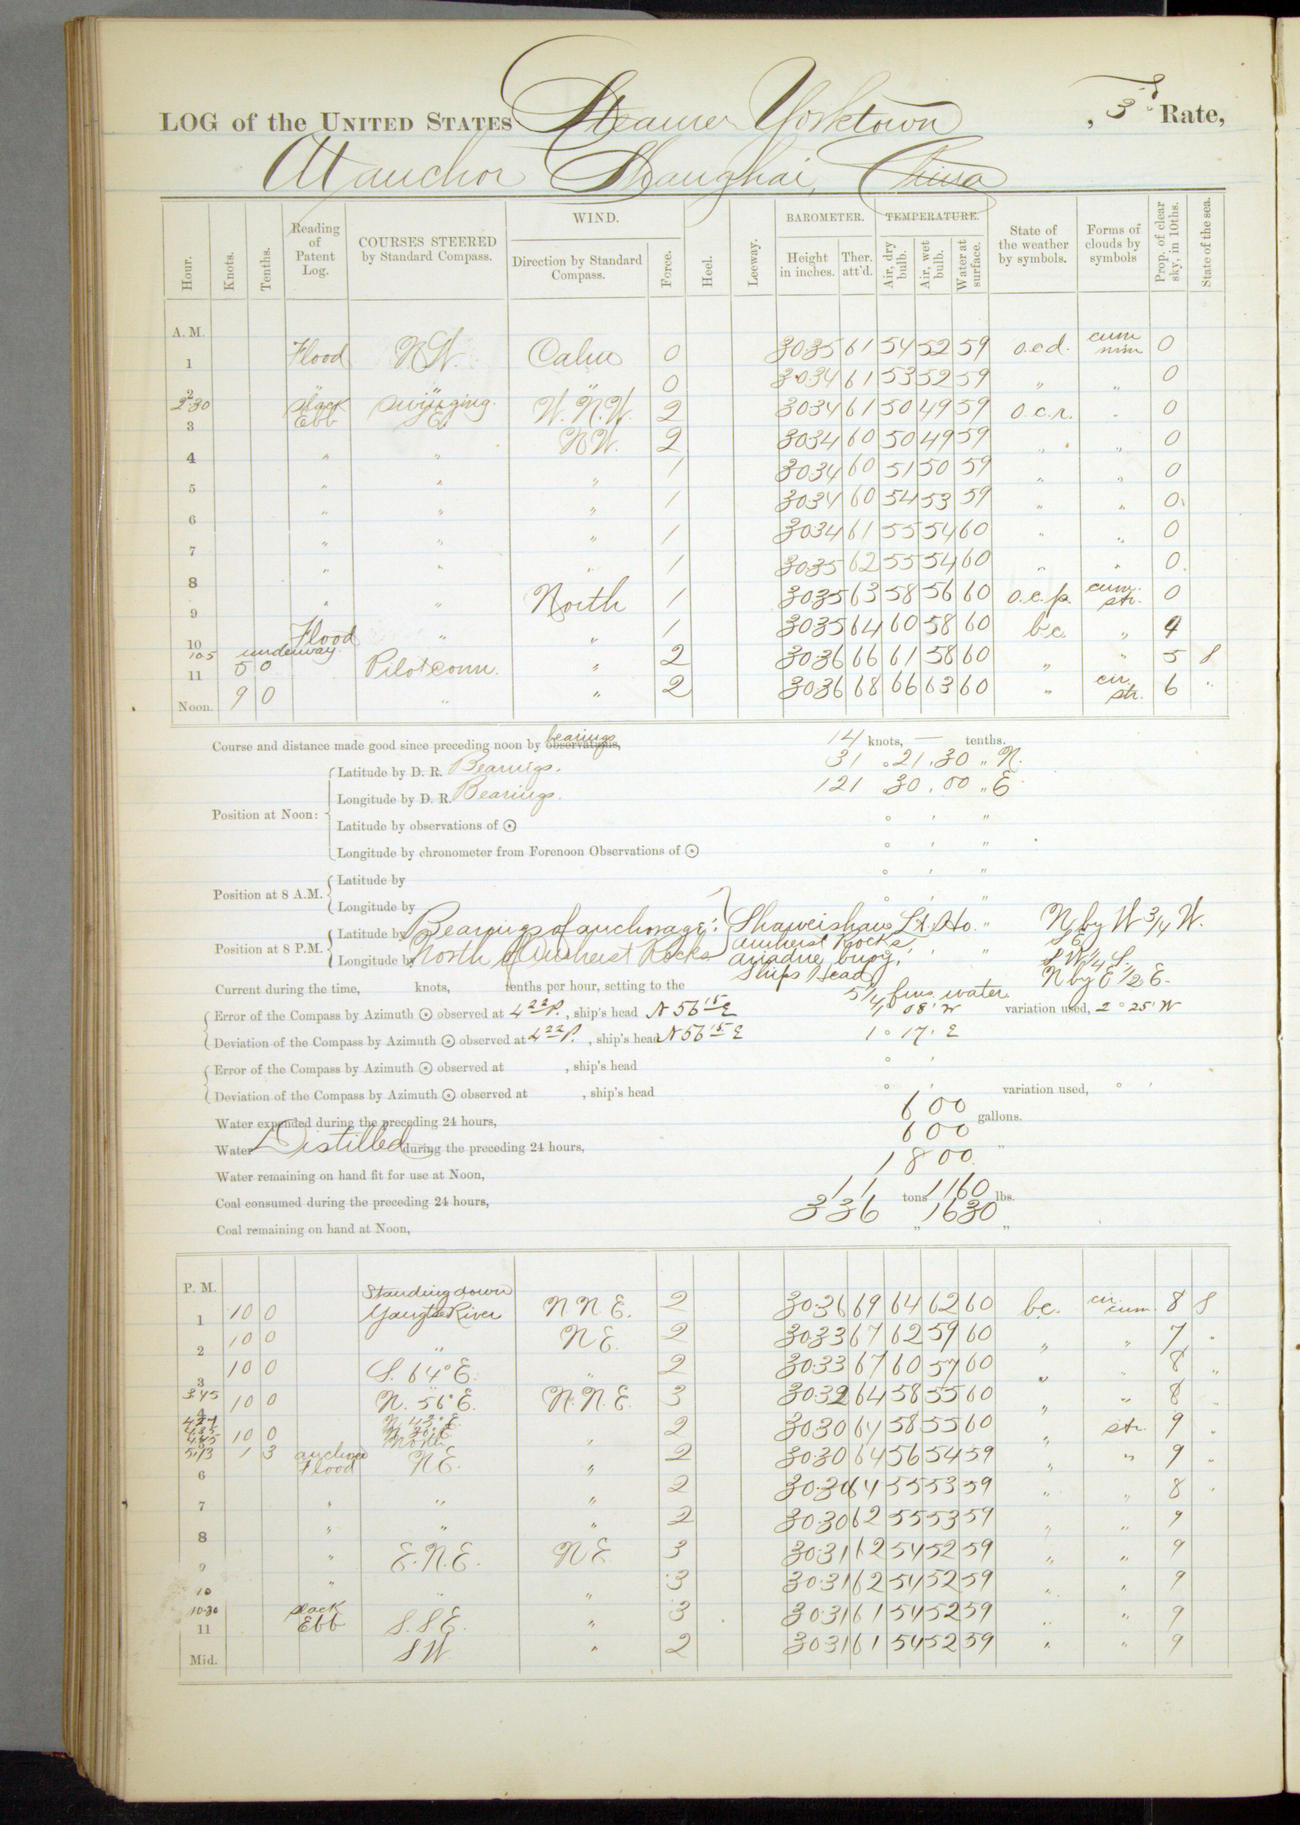 LOG of the UNITED STATES Steamer Yorktown, 3d Rate,
At anchor Shanghai, China
Hour. Knots. Tenths. Reading of Patent Log. COURSES STEERED by Standard Compass. WIND. Direction by Standard Compass. Force. Heel. Leeway. BAROMETER. Height in inches. Ther. att'd. TEMPERATURE. Air, dry bulb. Air, wet bulb. Water at surface. State of the weather by symbols. Forms of clouds by symbols Prop. of clear sky, in 10ths. State of the sea.
A. M.
1 Flood N.W. Calm 0 30.35 61 54 52 59 o.c.d. cum nim 0
2 " " " 0 30.34 61 53 52 59 " " 0
2.30 slack swinging.
3 Ebb S.E. W.N.W. 2 30.34 61 50 49 59 o.c.r. " 0
4 " " N.W. 2 30.34 60 50 49 59 " " 0
5 " " " 1 30.34 60 51 50 59 " " 0
6 " " " 1 30.34 60 54 53 59 " " 0
7 " " " 1 30.34 61 55 54 60 " " 0
8 " " " 1 30.35 62 55 54 60 " " 0
9 " " North 1 30.35 63 58 56 60 o.c.p. cum. str. 0
10 Flood " " 1 30.35 64 60 58 60 b.c. " 4
10.5 underway.
11 5 0 Pilot conn. " 2 30.36 66 61 58 60 " " 5 S
Noon. 9 0 " " 2 30.36 68 66 63 60 " cir. str. 6 "
Course and distance made good since preceding noon by observations, bearings 14 knots, — tenths.
Position at Noon: Latitude by D. R. Bearings. 31 ° 21 ' 30 " N.
Longitude by D. R. Bearings. 121 30 ' 00 " E
Latitude by observations of ☉ ° ' "
Longitude by chronometer from Forenoon Observations of ☉ ° ' "
Position at 8 A.M. Latitude by ° ' "
Longitude by ° ' "
Position at 8 P.M. Latitude by Bearings of anchorage: Shaweishan Lt. Ho. " N. by W 3/4 W.
Amherst Rocks, S E
Longitude by North of Amherst Rocks Ariadne buoy, ' " S W 1/4 S.
Ships Head N by E 1/2 E.
Current during the time, knots, tenths per hour, setting to the 5 1/4 fms. water
Error of the Compass by Azimuth ☉ observed at 4 22 P., ship's head N 56 15 E 1 ° 08 ' W variation used, 2 ° 25 ' W
Deviation of the Compass by Azimuth ☉ observed at 4 22 P. , ship's head N 56 15 E 1 ° 17 ' E
Error of the Compass by Azimuth ☉ observed at , ship's head ° '
Deviation of the Compass by Azimuth ☉ observed at , ship's head ° ' variation used, ° '
Water expended during the preceding 24 hours, 600 gallons.
Water Distilled during the preceding 24 hours, 600 "
Water remaining on hand fit for use at Noon, 1800
Coal consumed during the preceding 24 hours, 11 tons 1160 lbs.
Coal remaining on hand at Noon, 336 " 1630 "
P. M.
Standing down
1 10 0 Yangtze River N N E. 2 30.36 69 64 62 60 b.c. cir. cum. 8 S
2 10 0 " N E. 2 30.33 67 62 59 60 " " 7 "
3 10 0 S. 64° E. " 2 30.33 67 60 57 60 " " 8 "
3.45
4 10 0 N. 56° E. N.N.E. 3 30.32 64 58 55 60 " " 8 "
4.45
5 10 0 North " 2 30.30 64 58 55 60 " str. 9 "
5.13 1 3 anchored
6 Flood N E. " 2 30.30 64 56 54 59 " " 9 "
7 " " " 2 30.30 64 55 53 59 " " 8 "
8 " " " 2 30.30 62 55 53 59 " " 9
9 " E.N.E. N E. 3 30.31 62 54 52 59 " " 9
10 " " " 3 30.31 62 54 52 59 " " 9
10.30 slack
11 Ebb S.S.E. " 3 30.31 61 54 52 59 " " 9
Mid. S W. " 2 30.31 61 54 52 59 " " 9